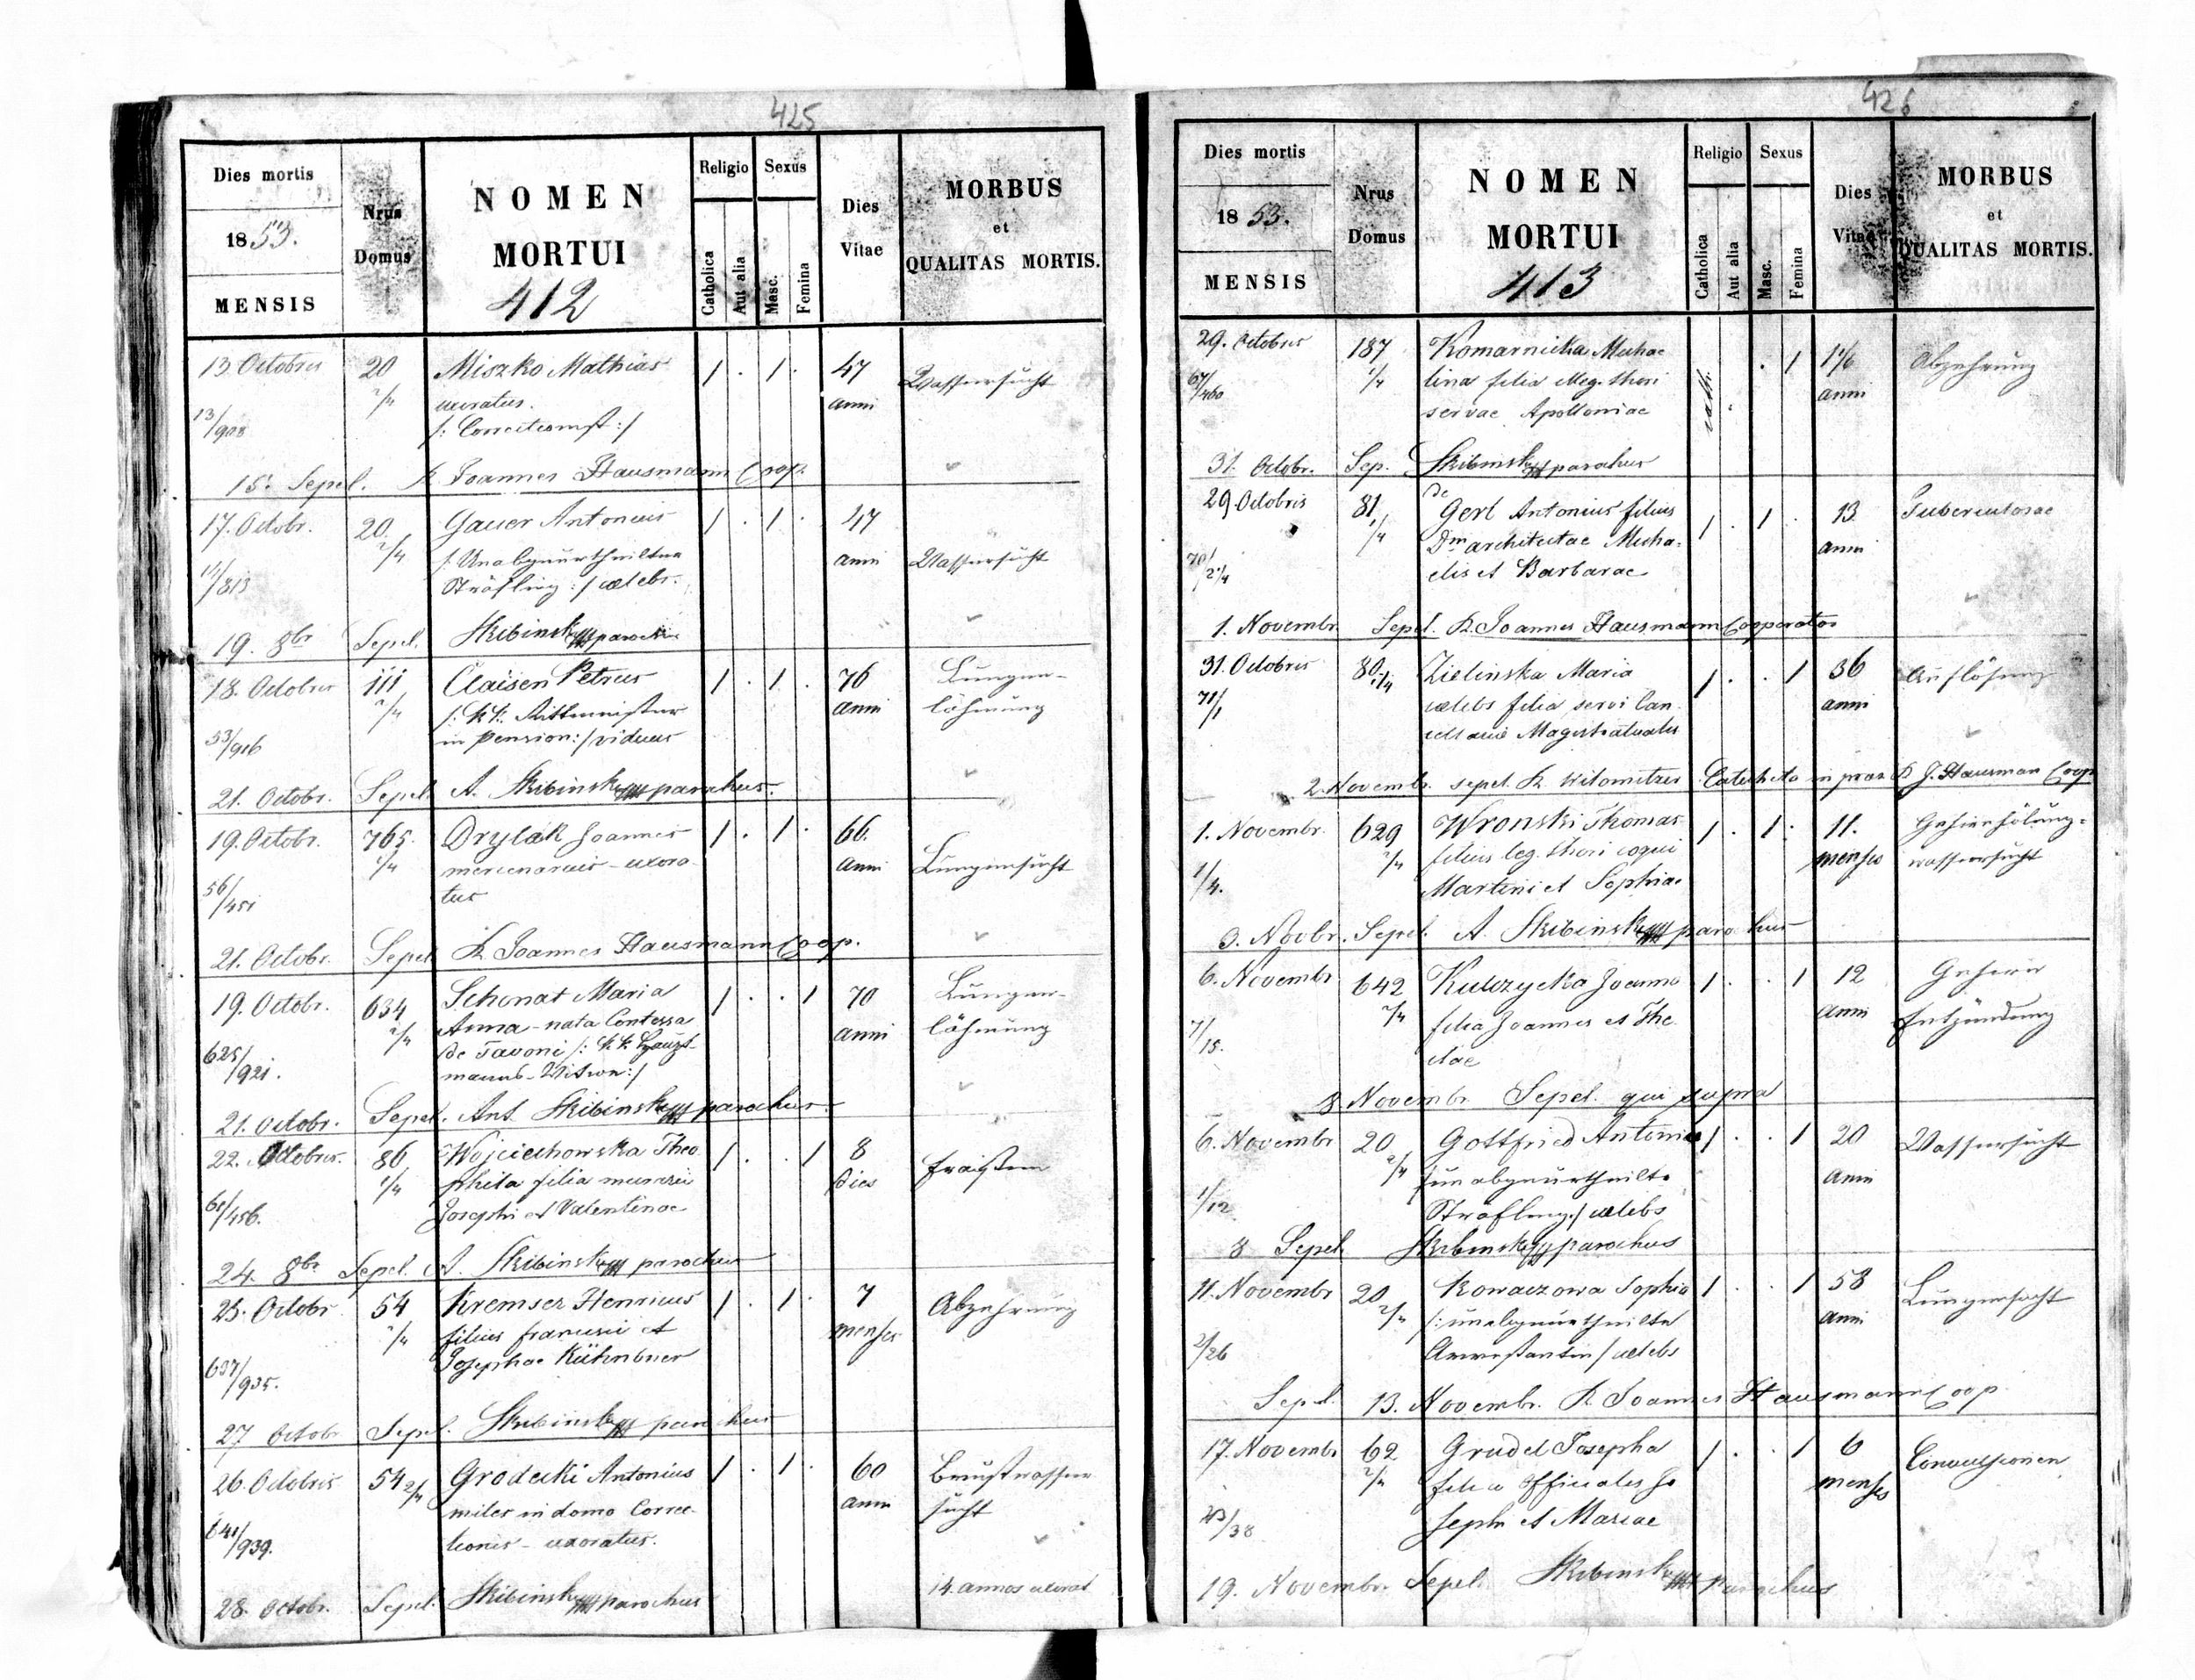 425
Dies mortis
1853.
MENSIS
Nrus
Domus
NOMEN
MORTUI
412
Religio
Catholica
Aut alia
Sexus
Masc.
Femina
Dies
Vitae
MORBUS
et
QUALITAS MORTIS.
13. Octobris 20 Miszko Mathias 1 . 1 . 47 Wassersucht
2/4 uxoratus. anni
13/908
15. Sepel. R. Joannes Hausmann Coop.
17. Octobr. 20 Gauer Antonius 1 . 1 . 47
2/4 /: Unabgeurtheilter anni Wassersucht
Sträfling :/ caelebs.
19. 8br Sepel. Skibinsky parochus
18. Octobris 111 Claisen Petrus 1 . 1 . 76 Lungen-
2/4 /: KK. Rittmeister anni lähmung
53/916 in Pension :/ viduus
21. Octobr. Sepel. A. Skibinsky parochus.
19. Octobr. 765 Drylak Joannes 1 . 1 . 66.
1/4 mercenarius - uxora- anni Lungensucht
56/451 tus
21. Octobr. Sepel. R. Joannes Hausmann Coop.
19. Octobr. 634 Schonat Maria 1 . . 1 70 Lungen-
2/4 Anna - nata Contessa anni lähmung
625/921. de Tavoni /: KK Haupt-
manns-Witwe :/
21. Octobr. Sepel. Ant. Skibinsky parochus.
22. Octobris. 86 Wojciechowska Theo 1 . . 1 8 Fraisen
1/4 phila filia dies
61/456. Josephi et Valentinae
24. 8br Sepel. A. Skibinsky parochus
25. Octobr 54 Kremser Henricus 1 . 1 . 7 Abzehrung
2/4 filius Francisci et menses
637/935. Josephae Kühnbner
27 Octobr Sepel. Skibinsky parochus
26. Octobris 54 2/4 Grodecki Antonius 1 . 1 . 60 Brustwasser
miles in domo Correc- anni sucht
641/939. tionis - uxoratus.
28. Octobr. Sepel. Skibinsky parochus 14. annos
426
Dies mortis
1853.
MENSIS
Nrus
Domus
NOMEN
MORTUI
413
Religio
Catholica
Aut alia
Sexus
Masc.
Femina
Dies
Vitae
MORBUS
et
QUALITAS MORTIS.
29. Octobris 187 Komarnicka Micha . 1 1 1/6 Abzehrung
67/460 1/4 lina filia illeg. thori cath. anni
servae Apolloniae
31. Octobr. Sep. Skibinsky parochus
29. Octobris 81 de Gerl Antonius filius 1 . 1 . 13 Tuberculosae
1/4 Dni architectae Micha- anni
elis et Barbarae
1. Novembr. Sepel. R. Joannes Hausmann Cooperator
31. Octobris 80 1/4 Zielinska Maria 1 . . 1 36 Auflösung
71/1 caelebs filia servi Can- anni
cellariae Magistratualis
2. Novembr. sepel. R. Witometzer Catecheta in praes R J. Hausman Coop
1. Novembr. 629 Wronski Thomas 1 . 1 . 11. Gehirnhölung-
2/4 filius leg. thori coqui menses wassersucht
1/4. Martini et Sophiae
3. Novbr. Sepel. A. Skibinsky parochus
6. Novembr 642 Kulczycka Joanna 1 . . 1 12 Gehirn
2/4 filia Joannes et The- anni Entzündung
7/15. clae
8 Novembr. Sepel. qui supra
6. Novembr 20 Gottfried Antonia 1 . . 1 20 Wassersucht
2/4 /unabgeurtheilte anni
1/12 Sträfling:/ caelebs
8 Sepel. Skibinsky parochus
11. Novembr 20 Kowaczowa Sophia 1 . . 1 58 Lungensucht
2/4 /: unabgeurtheilte anni
2/26 Arrestantin / caelebs
Sepel. 13. Novembr. R. Joannes Hausmann Coop.
17. Novembr 62 Grudel Josepha 1 . . 1 6 Convulsionen
2/4 filia officialis Jo menses
23/38 sephi et Mariae
19. Novembr. Sepel. Skibinsky parochus